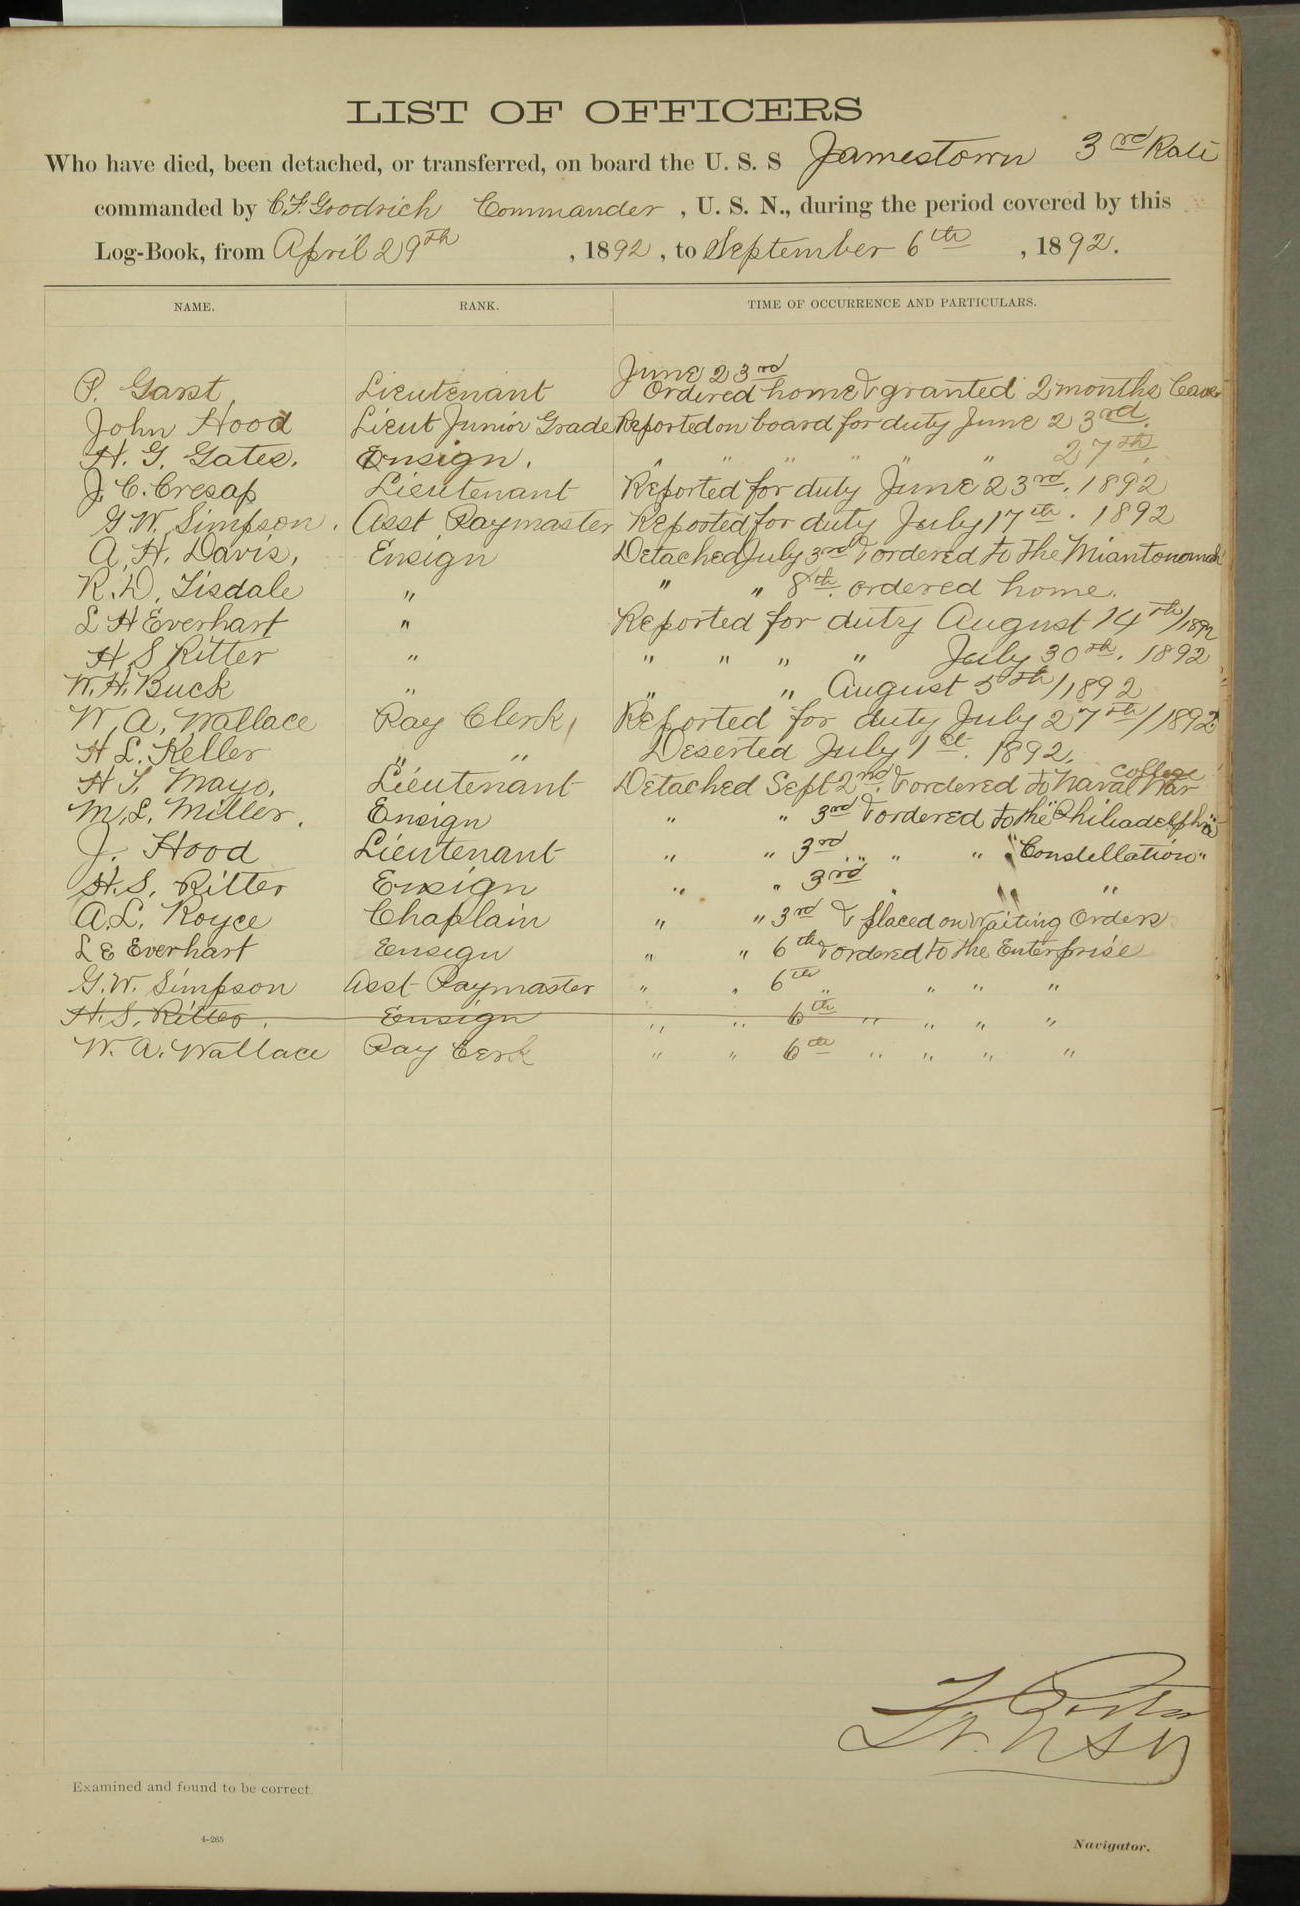 LIST OF OFFICERS
Who have died, been detached, or transferred, on board the U. S. S Jamestown 3rd Rate
commanded by C.F. Goodrich Commander , U. S. N., during the period covered by this
Log-Book, from April 29th , 1892 , to September 6th , 1892.
NAME. RANK. TIME OF OCCURRENCE AND PARTICULARS.
June 23rd
P. Garst Lieutenant Ordered home & granted 2 months leave
John Hood Lieut Junior Grade Reported on board for duty June 23rd.
H. G. Gates. Ensign. " " " " " " 27th "
J. C. Cresap Lieutenant Reported for duty June 23rd. 1892
G. W. Simpson. Asst Paymaster Reported for duty July 17th. 1892
A. H. Davis, Ensign Detached July 3rd & ordered to the Miantonomah
R. D. Tisdale " " " 8th. ordered home.
L H Everhart " Reported for duty August 14th/1892
H S Ritter " " " " " July 30th. 1892
W. H. Buck " " " August 5th/1892
W. A. Wallace Pay Clerk, Reported for duty July 27th/1892
H L. Keller " " Deserted July 1st. 1892.
college
H. T. Mayo. Lieutenant Detached Sept 2nd. & ordered to Naval War
M. L. Miller. Ensign " " 3rd & ordered to the "Philiadelphia"
J. Hood Lieutenant " " 3rd " " " " "Constellation"
H. S. Ritter Ensign " " 3rd " " "
A. L. Royce Chaplain " " 3rd & placed on Waiting Orders
L E Everhart Ensign " " 6th & ordered to the Enterprise
G. W. Simpson Asst Paymaster " " 6th " " " "
H. S. Ritter. Ensign " " 6th " " " "
W. A. Wallace Pay Cerk " " 6th " " " "
Examined and found to be correct.
4-265
Navigator.